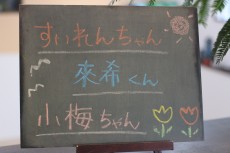 すいれんちゃん
來希くん
小梅ちゃん